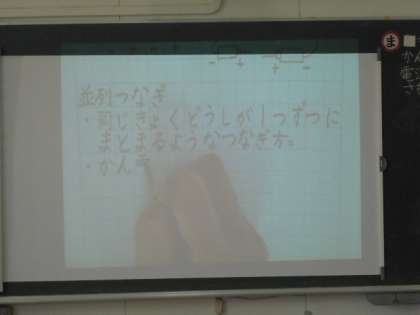 - + - +
並列つなぎ
・同じきょくどうしが1つずつに
まとまるようなつなぎ方。
・かん
ま